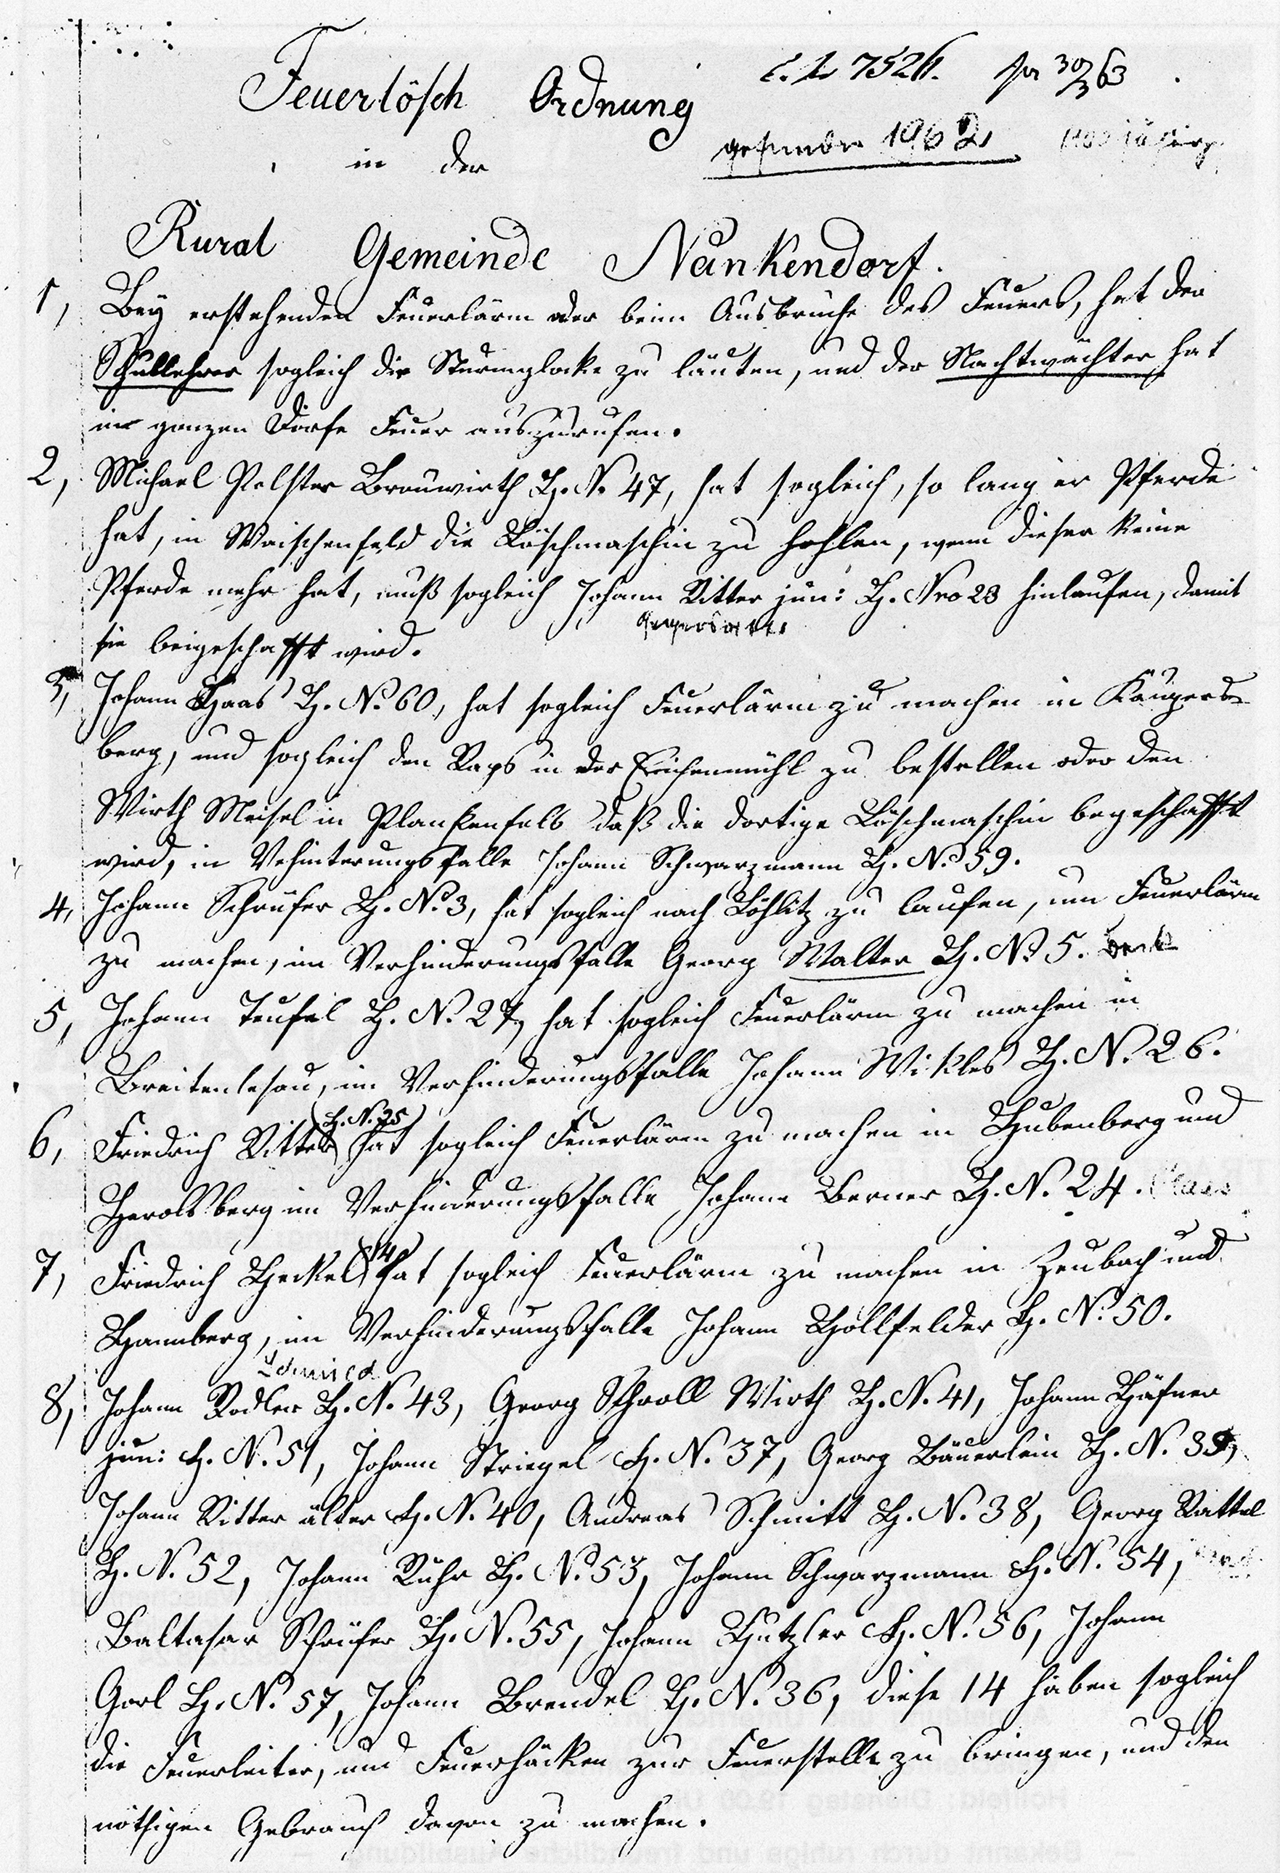 Feuerlösch Ordnung
gefunden 1962
in der
Rural Gemeinde Nankendorf.
1, Bey erstehenden Feuerlärm oder beim Ausbruche des Feuers, hat der
Schullehrer sogleich die Sturmglocke zu läuten, und der Nachtwächter hat
im ganzen Dorfe Feuer auszurufen.
2, Michael Polster Brauwirth H. N. 47, hat sogleich, so lang er Pferde
hat, in Waischenfeld die Löschmaschin zu hohlen, wenn dieser keine
Pferde mehr hat, muß sogleich Johann Ritter jun: H. Nro 23 hinlaufen, damit
sie beigeschafft wird.
3, Johann Haas H. No 60, hat sogleich Feuerlärm zu machen in Kaupers-
berg, und sogleich den Raps in der Eichenmühl zu bestellen oder den
Wirth Meisel in Plankenfels daß die dortige Löschmaschin begeschafft
wird, in Vehinterungsfalle Johann Schwarzmann H. No 59.
4, Johann Schrüfer H. No 3, hat sogleich nach Löhlitz zu laufen, um Feuerlärm
zu machen, im Verhinderungsfalle Georg Walter H. No 5.
5, Johann Teufel H. N. 27, hat sogleich Feuerlärm zu machen in
Breitenlesau, im Verhinderungsfalle Johann Wikles H. N. 26.
6, Friedrich Ritter H. N. 25 hat sogleich Feuerlärm zu machen in Hubenberg und
Herolsberg im Verhinderungsfalle Johann Berner H. N. 24.
7, Friedrich Heckel 14 hat sogleich Feuerlärm zu machen in Zeubach und
Hannberg, im Verhinderungsfalle Johann Hollfelder H. No 50.
Schmied
8, Johann Rodler H. N. 43, Georg Schroll Wirth H. N. 41, Johann Häfner
jun: H. N. 51, Johann Striegel H. N. 37, Georg Bäuerlein H. N. 39,
Johann Ritter älter H. N. 40, Andreas Schmitt H. N. 38, Georg Rattel
H. N. 52, Johann Rühr H. No 53, Johann Schwarzmann H. N. 54,
Baltasar Schrüfer H. N. 55, Johann Hutzler H. N. 56, Johann
Garl H. No 57, Johann Brendel H. No 36, diese 14 haben sogleich
die Feuerleiter, und Feuerhäcken zur Feuerstelle zu bringen, und den
nöthigen Gebrauch davon zu machen.